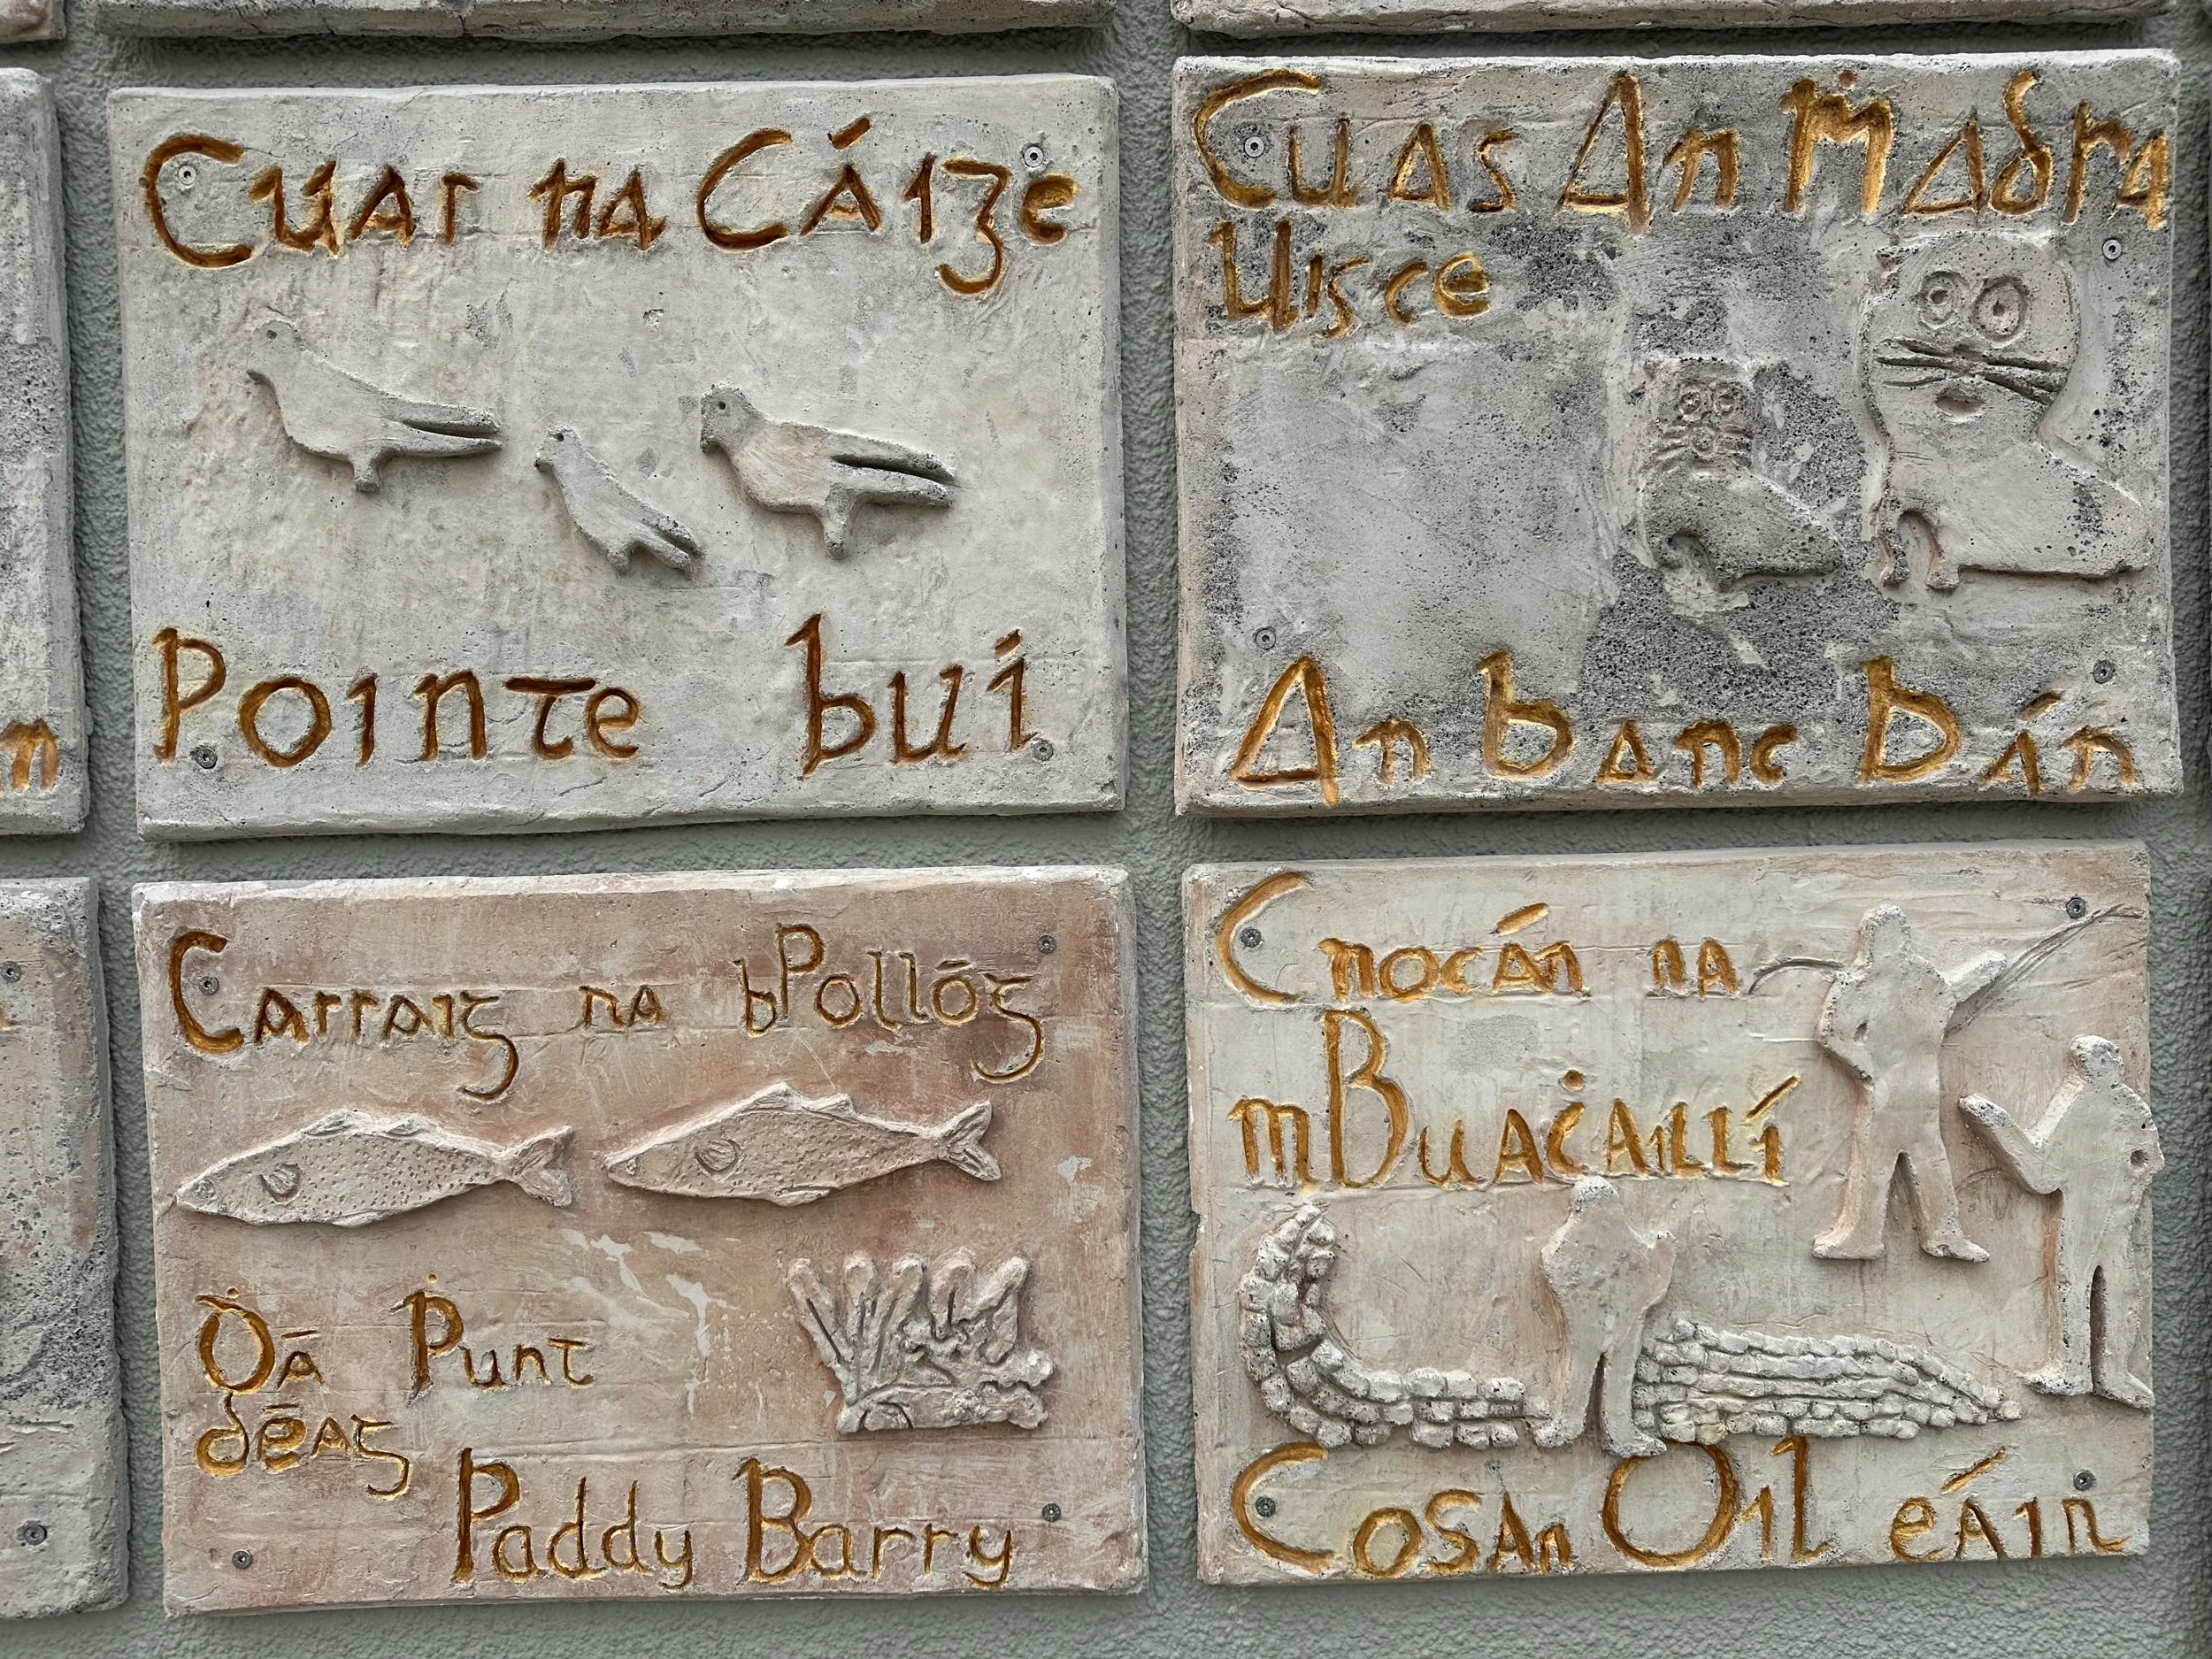 Cuas na Cáige
Pointe buí
Cuas An Ṁadra
Uisce
An banc Bán
Carraig na bPollóg
Ḋá Ṗunt
déag
Paddy Barry
Cnocán na
mBuaċaillí
Cosan Oil eáin